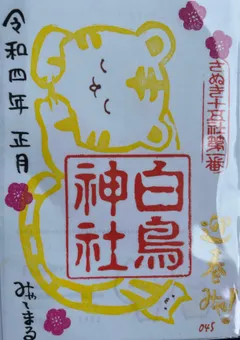 さぬき十五社第一番
令和四年 正月
白鳥
神社
迎春
みやまる
045